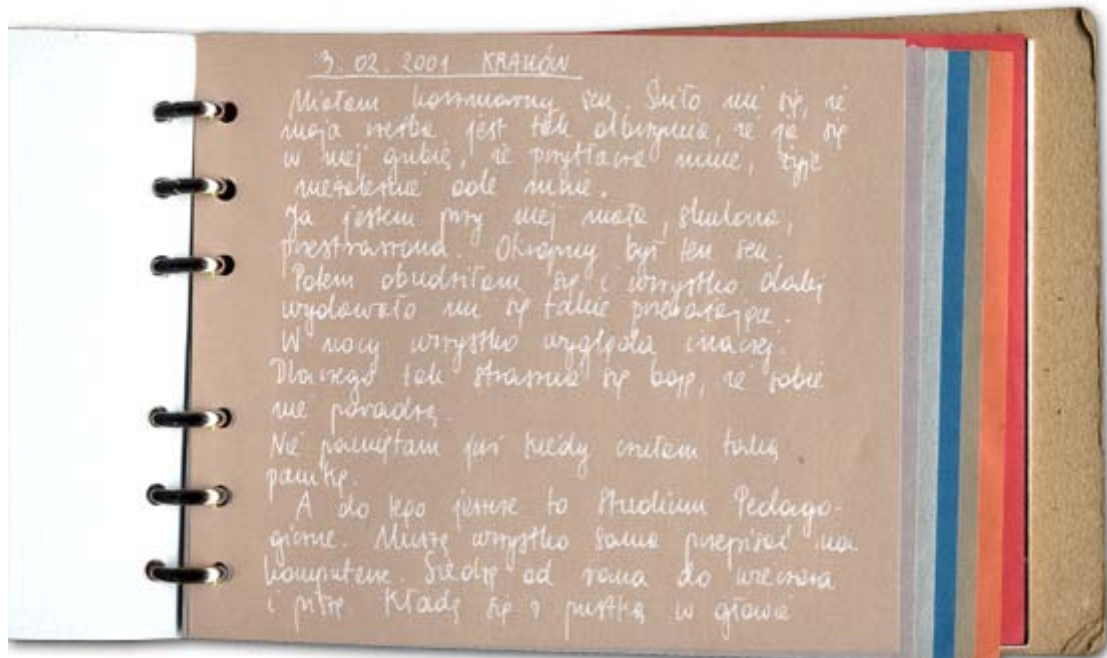 3.02.2001 KRAKÓW
Miałam koszmarny sen. Śniło mi się, że
moja rzeźba jest tak olbrzymia, że ja się
w niej gubię, że przytłacza mnie, żyje
niezależnie ode mnie.
Ja jestem przy niej mała, skulona,
przestraszona. Okropny był ten sen.
Potem obudziłam się i wszystko dalej
wydawało mi się takie przerażające.
W nocy wszystko wygląda inaczej.
Dlaczego tak strasznie się boję, że sobie
nie poradzę.
Nie pamiętam już kiedy czułam taką
panikę.
A do tego jeszcze to Studium Pedago-
giczne. Muszę wszystko sama przepisać na
komputerze. Siedzę od rana do wieczora
i piszę. Kładę się z pustką w głowie